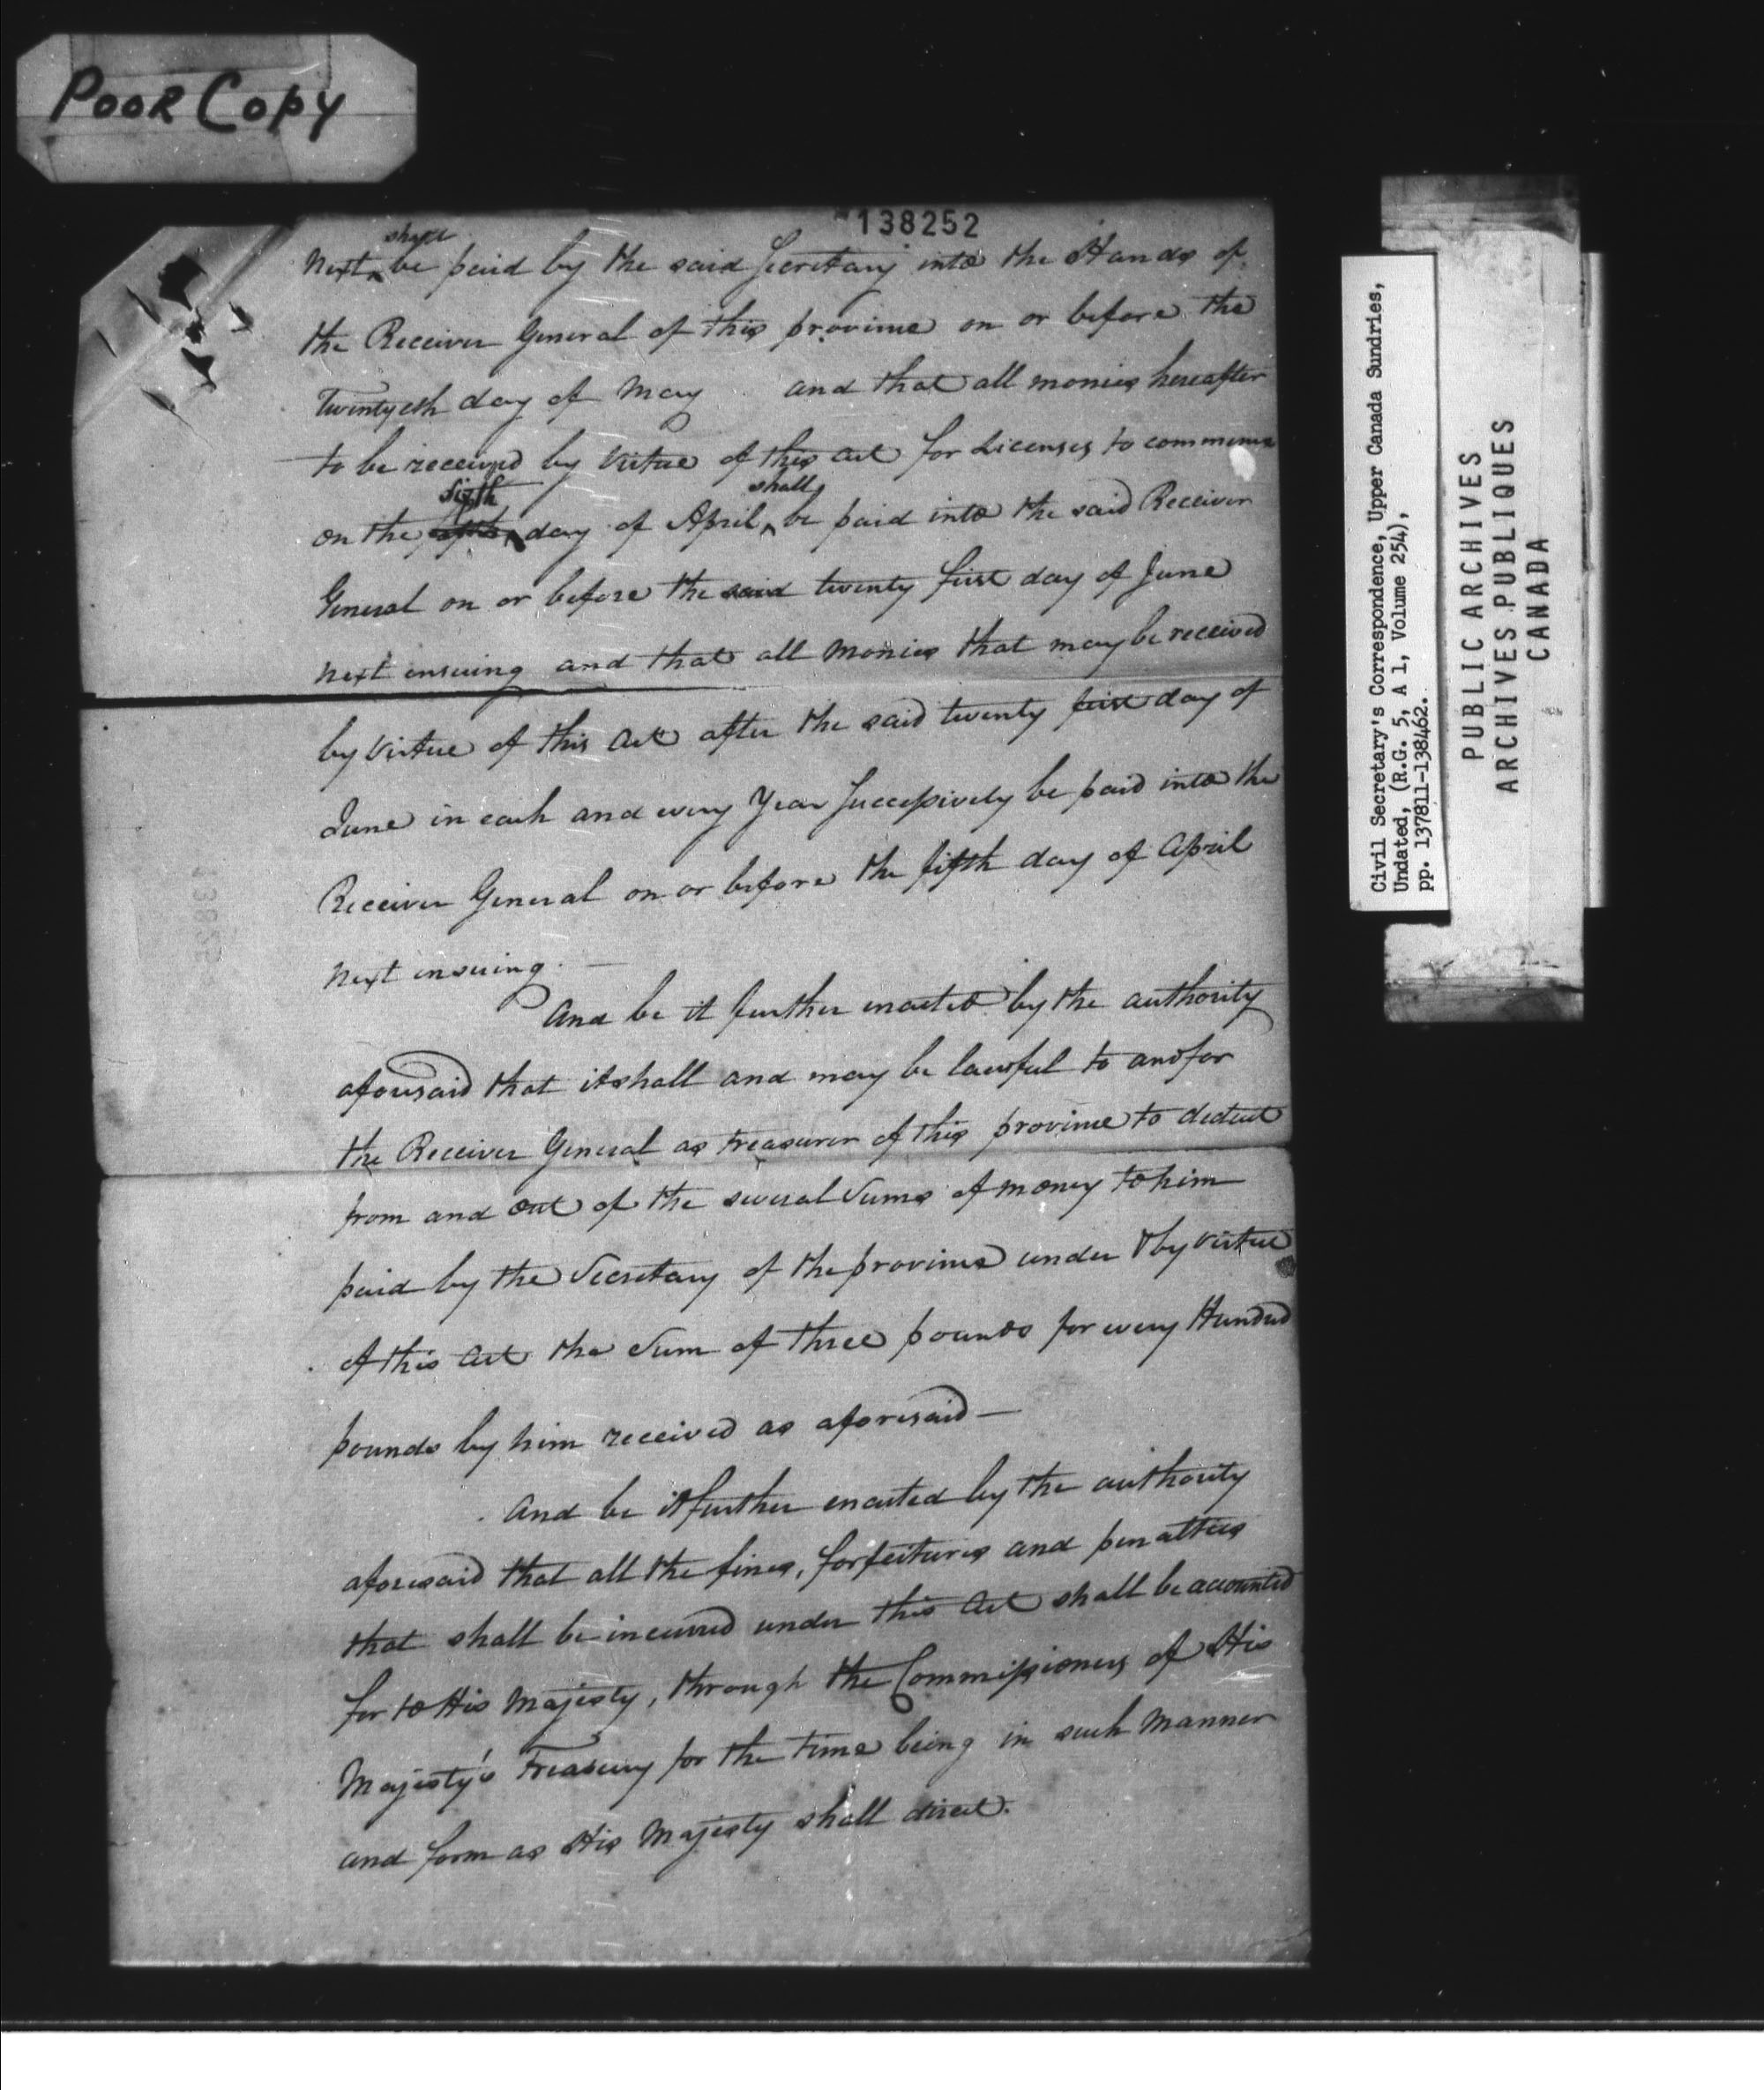 Poor Copy
138252
shall
next be paid by the said Secretary into the Hands of
the Receiver General of this province on or before the
twentyeth day of May and that all monies hereafter
to be received by virtue of this Act for Licenses to commence
sixth shall
on the day of April be paid into the said Receiver
General on or before the said twenty first day of June
next ensuing and that all Monies that may be received
by virtue of this Act after the said twenty first day of
June in each and every Year Successively be paid into the
Receiver General on or before the fifth day of April
next ensuing. —
And be it further enacted by the authority
aforesaid that it shall and may be lawful to and for
the Receiver General as treasurer of this province to deduct
from and out of the several Sums of money to him
paid by the Secretary of the province under & by virtue
of this Act the Sum of three pounds for every Hundred
pounds by him received as aforesaid —
And be it further enacted by the authority
aforesaid that all the fines, forfeitures and penalties
that shall be incurred under this Act shall be accounted
for to His Majesty, through the Commissioners of His
Majesty's Treasury for the time being in such Manner
and form as His Majesty shall direct.
Civil Secretary's Correspondence, Upper Canada Sundries,
Undated, (R.G. 5, A 1, Volume 254),
pp. 137811-138462.
PUBLIC ARCHIVES
ARCHIVES PUBLIQUES
CANADA